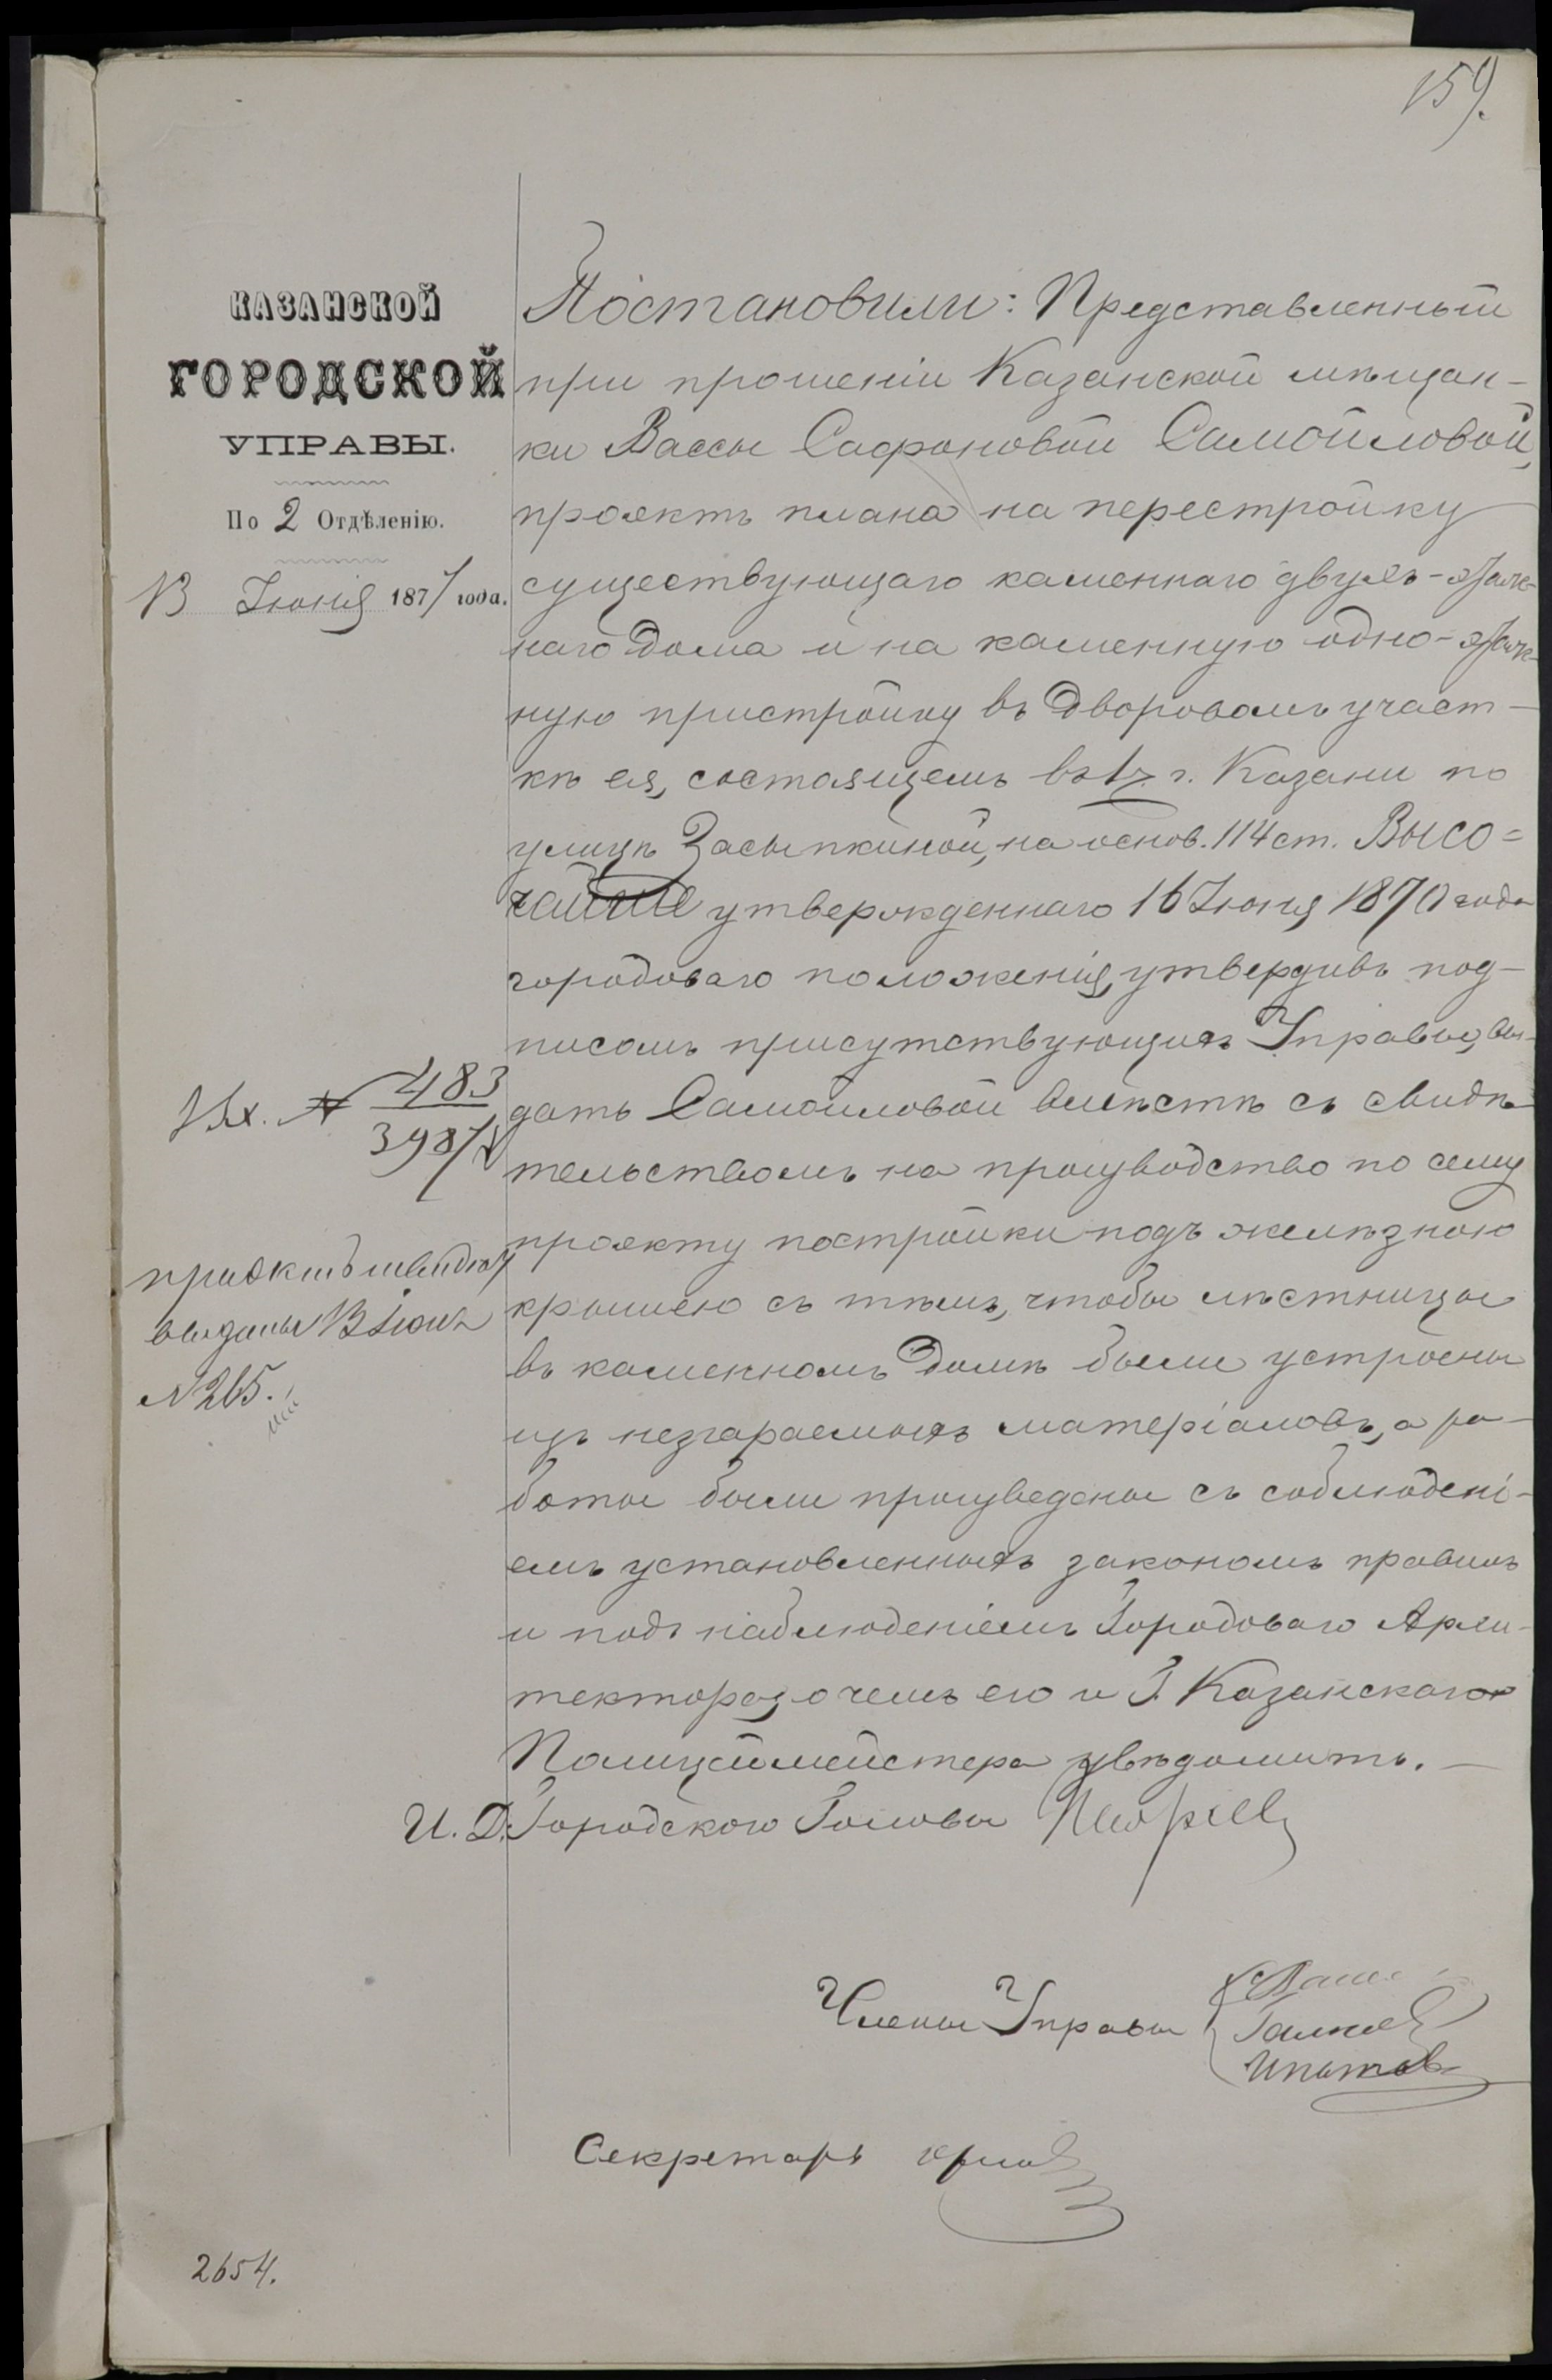 159.
КАЗАНСКОЙ
ГОРОДСКОЙ
УПРАВЫ.
По 2 Отдѣленію.
13 Іюня 187 года.
Постановили: Представленный
при прошеніи Казанской мѣщан-
ки Вассы Сафроновой Самойловой,
проэктъ плана на перестройку
существующаго каменнаго двухъ-этаж-
наго дома и на каменную одно-этаж-
ную пристройку въ дворовомъ участ-
кѣ ея, состоящемъ въ г. Казани по
улицѣ Засыпкиной, на основ. 114 ст. Высо=
чайше утвержденнаго 16 Іюня 1870 года
городоваго положенія, утвердивъ под-
писомъ присутствующихъ Управы, вы-
дать Самойловой вмѣстѣ съ свидѣ-
тельствомъ на производство по сему
проэкту постройки подъ желѣзною
крышею съ тѣмъ, чтобы лѣстницы
въ каменномъ домѣ были устроены
изъ незгараемыхъ матеріаловъ, а ра-
боты были произведены съ соблюдені-
емъ установленныхъ закономъ правилъ
и подъ наблюденіемъ Городоваго Архи-
тектора, о чемъ его и Г. Казанскаго
Полицеймейстера увѣдомить.
И. Д. Городскаго Головы
Вх. № 483
выданы 13 Іюня
№ 265.
Члены Управы
Ипатовъ
Секретарь
2654.